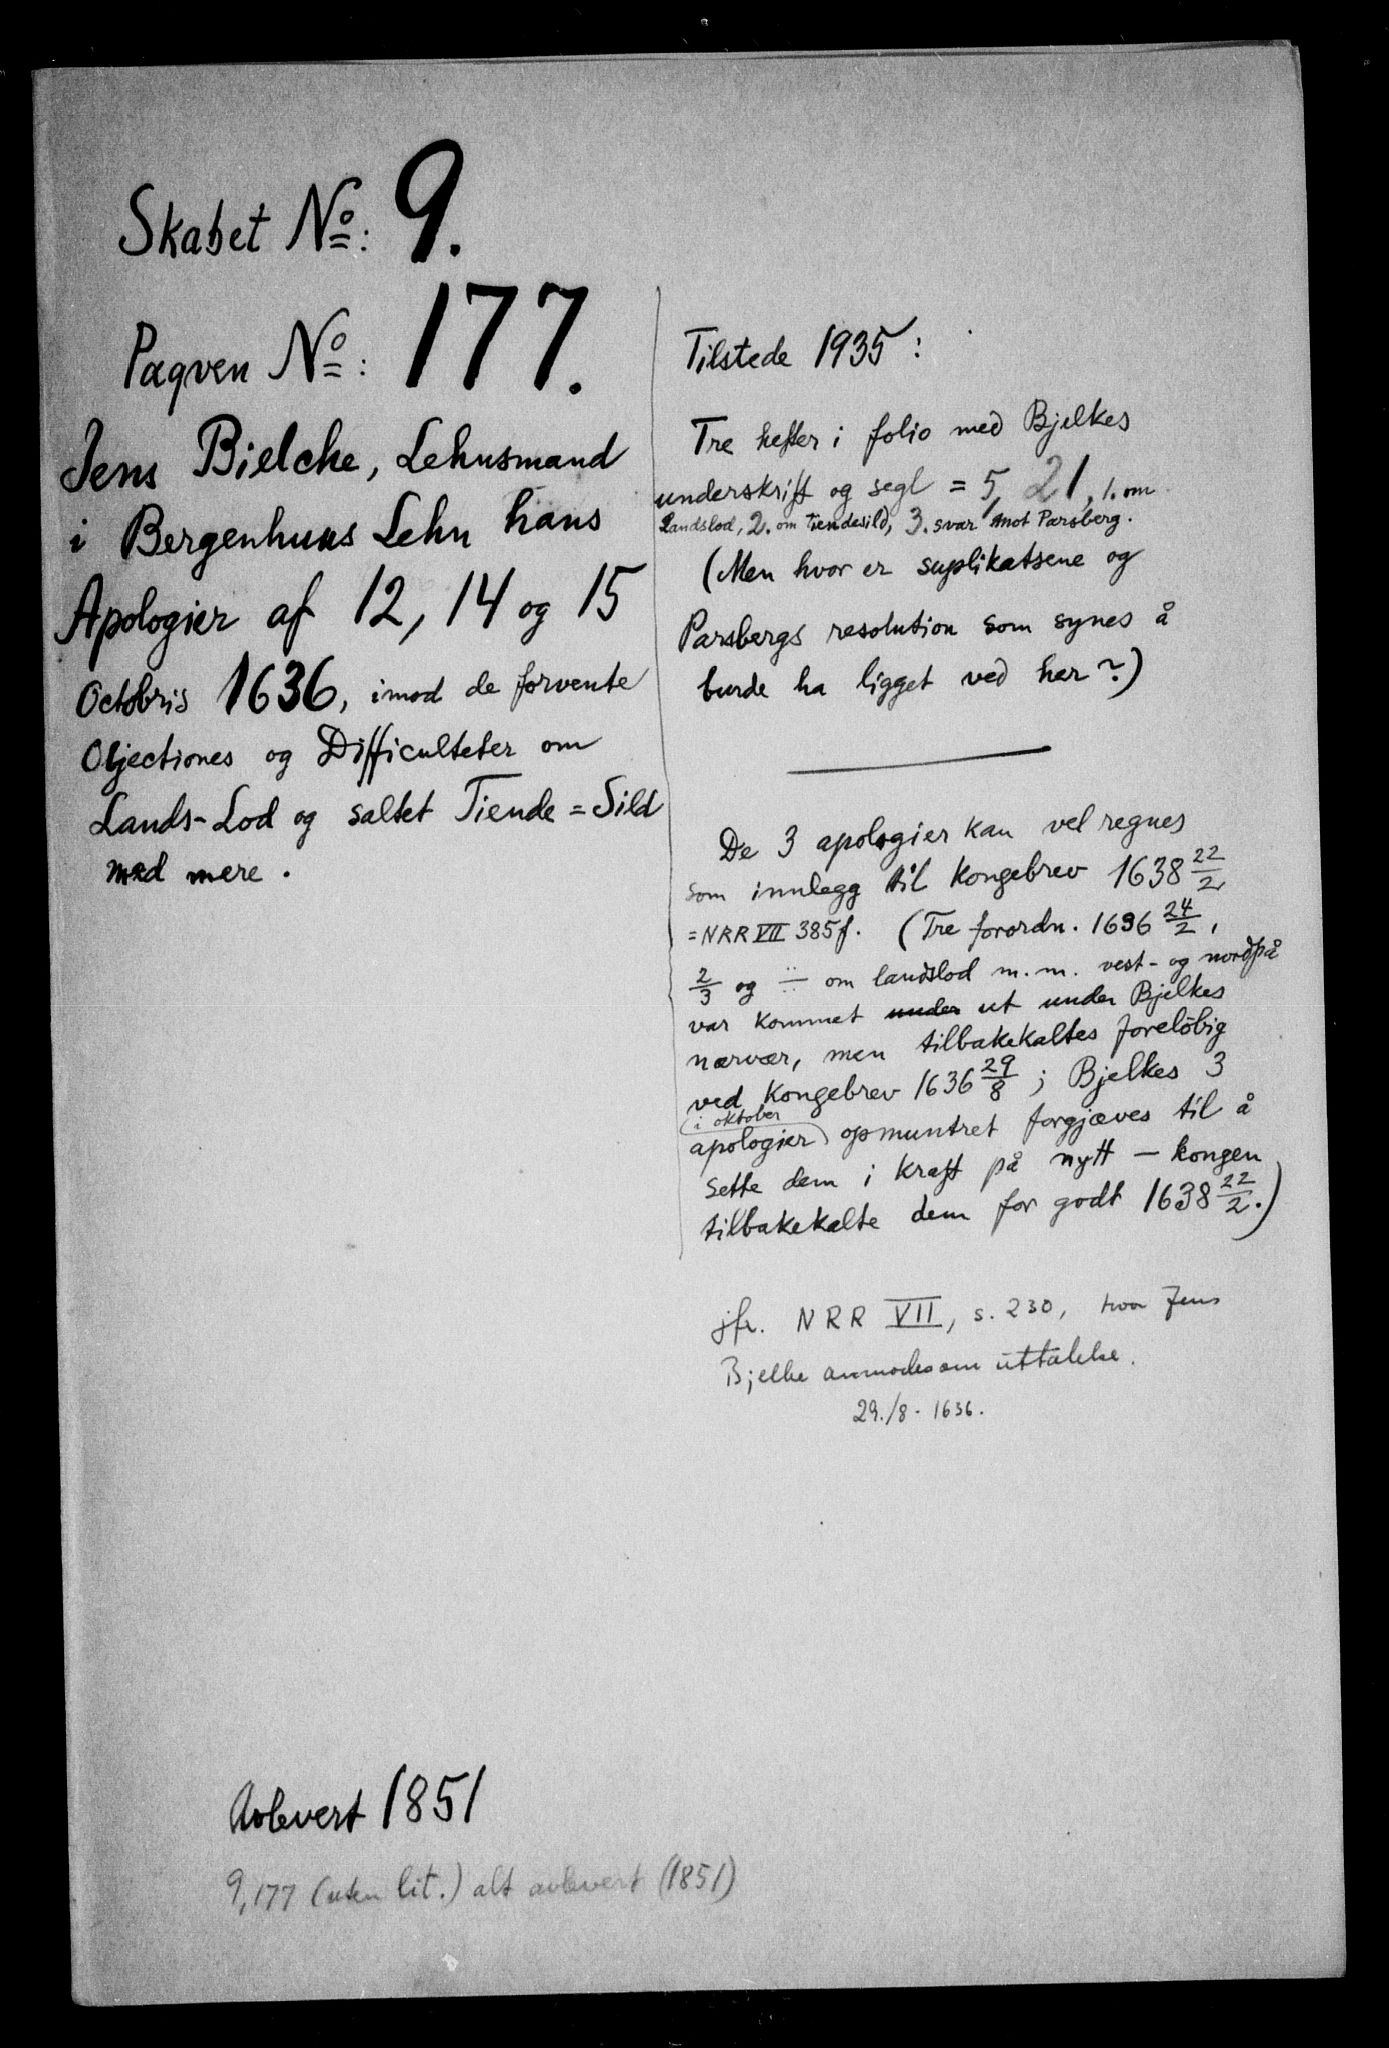 Skabet No: 9.
Paqven No: 177.
Jens Bielcke, Lehnsmand
i Bergenhuus Lehn hans
Apologier af 12, 14 og 15
Octobris 1636, imod de forvente
Objectiones og Difficulteter om
Lands-Lod og saltet Tiende=Sild
med mere.
Tilstede 1935:
Tre hefter i folio med Bjelkes
underskrift og segl = 5, 21, 1. om
Landslod, 2. om tiendesild, 3. svar mot Parsberg.
(Men hvor er suplikatsene og
Parsbergs resolution som synes å
burde ha ligget ved her?)
De 3 apologier kan vel regnes
som innlegg til kongebrev 1638 22/2
=NRR VII 385f. (Tre forordn. 1636 24/2,
2/3 og ÷ om landslod m.m. vest- og nordpå
var kommet under ut under Bjelkes
nærvær, men tilbakekaltes foreløbig
ved kongebrev 1636 29/8; Bjelkes 3
(i oktober
apologier) opmuntret forgjæves til å
sette dem i kraft på nytt – kongen
tilbakekalte dem for godt 1638 22/2.)
jfr. NRR VII, s. 230, hvor Jens
Bjelke anmodes om uttalelse.
29./8. 1636.
Avlevert 1851
9,177 (uten lit.) alt avlevert (1851)